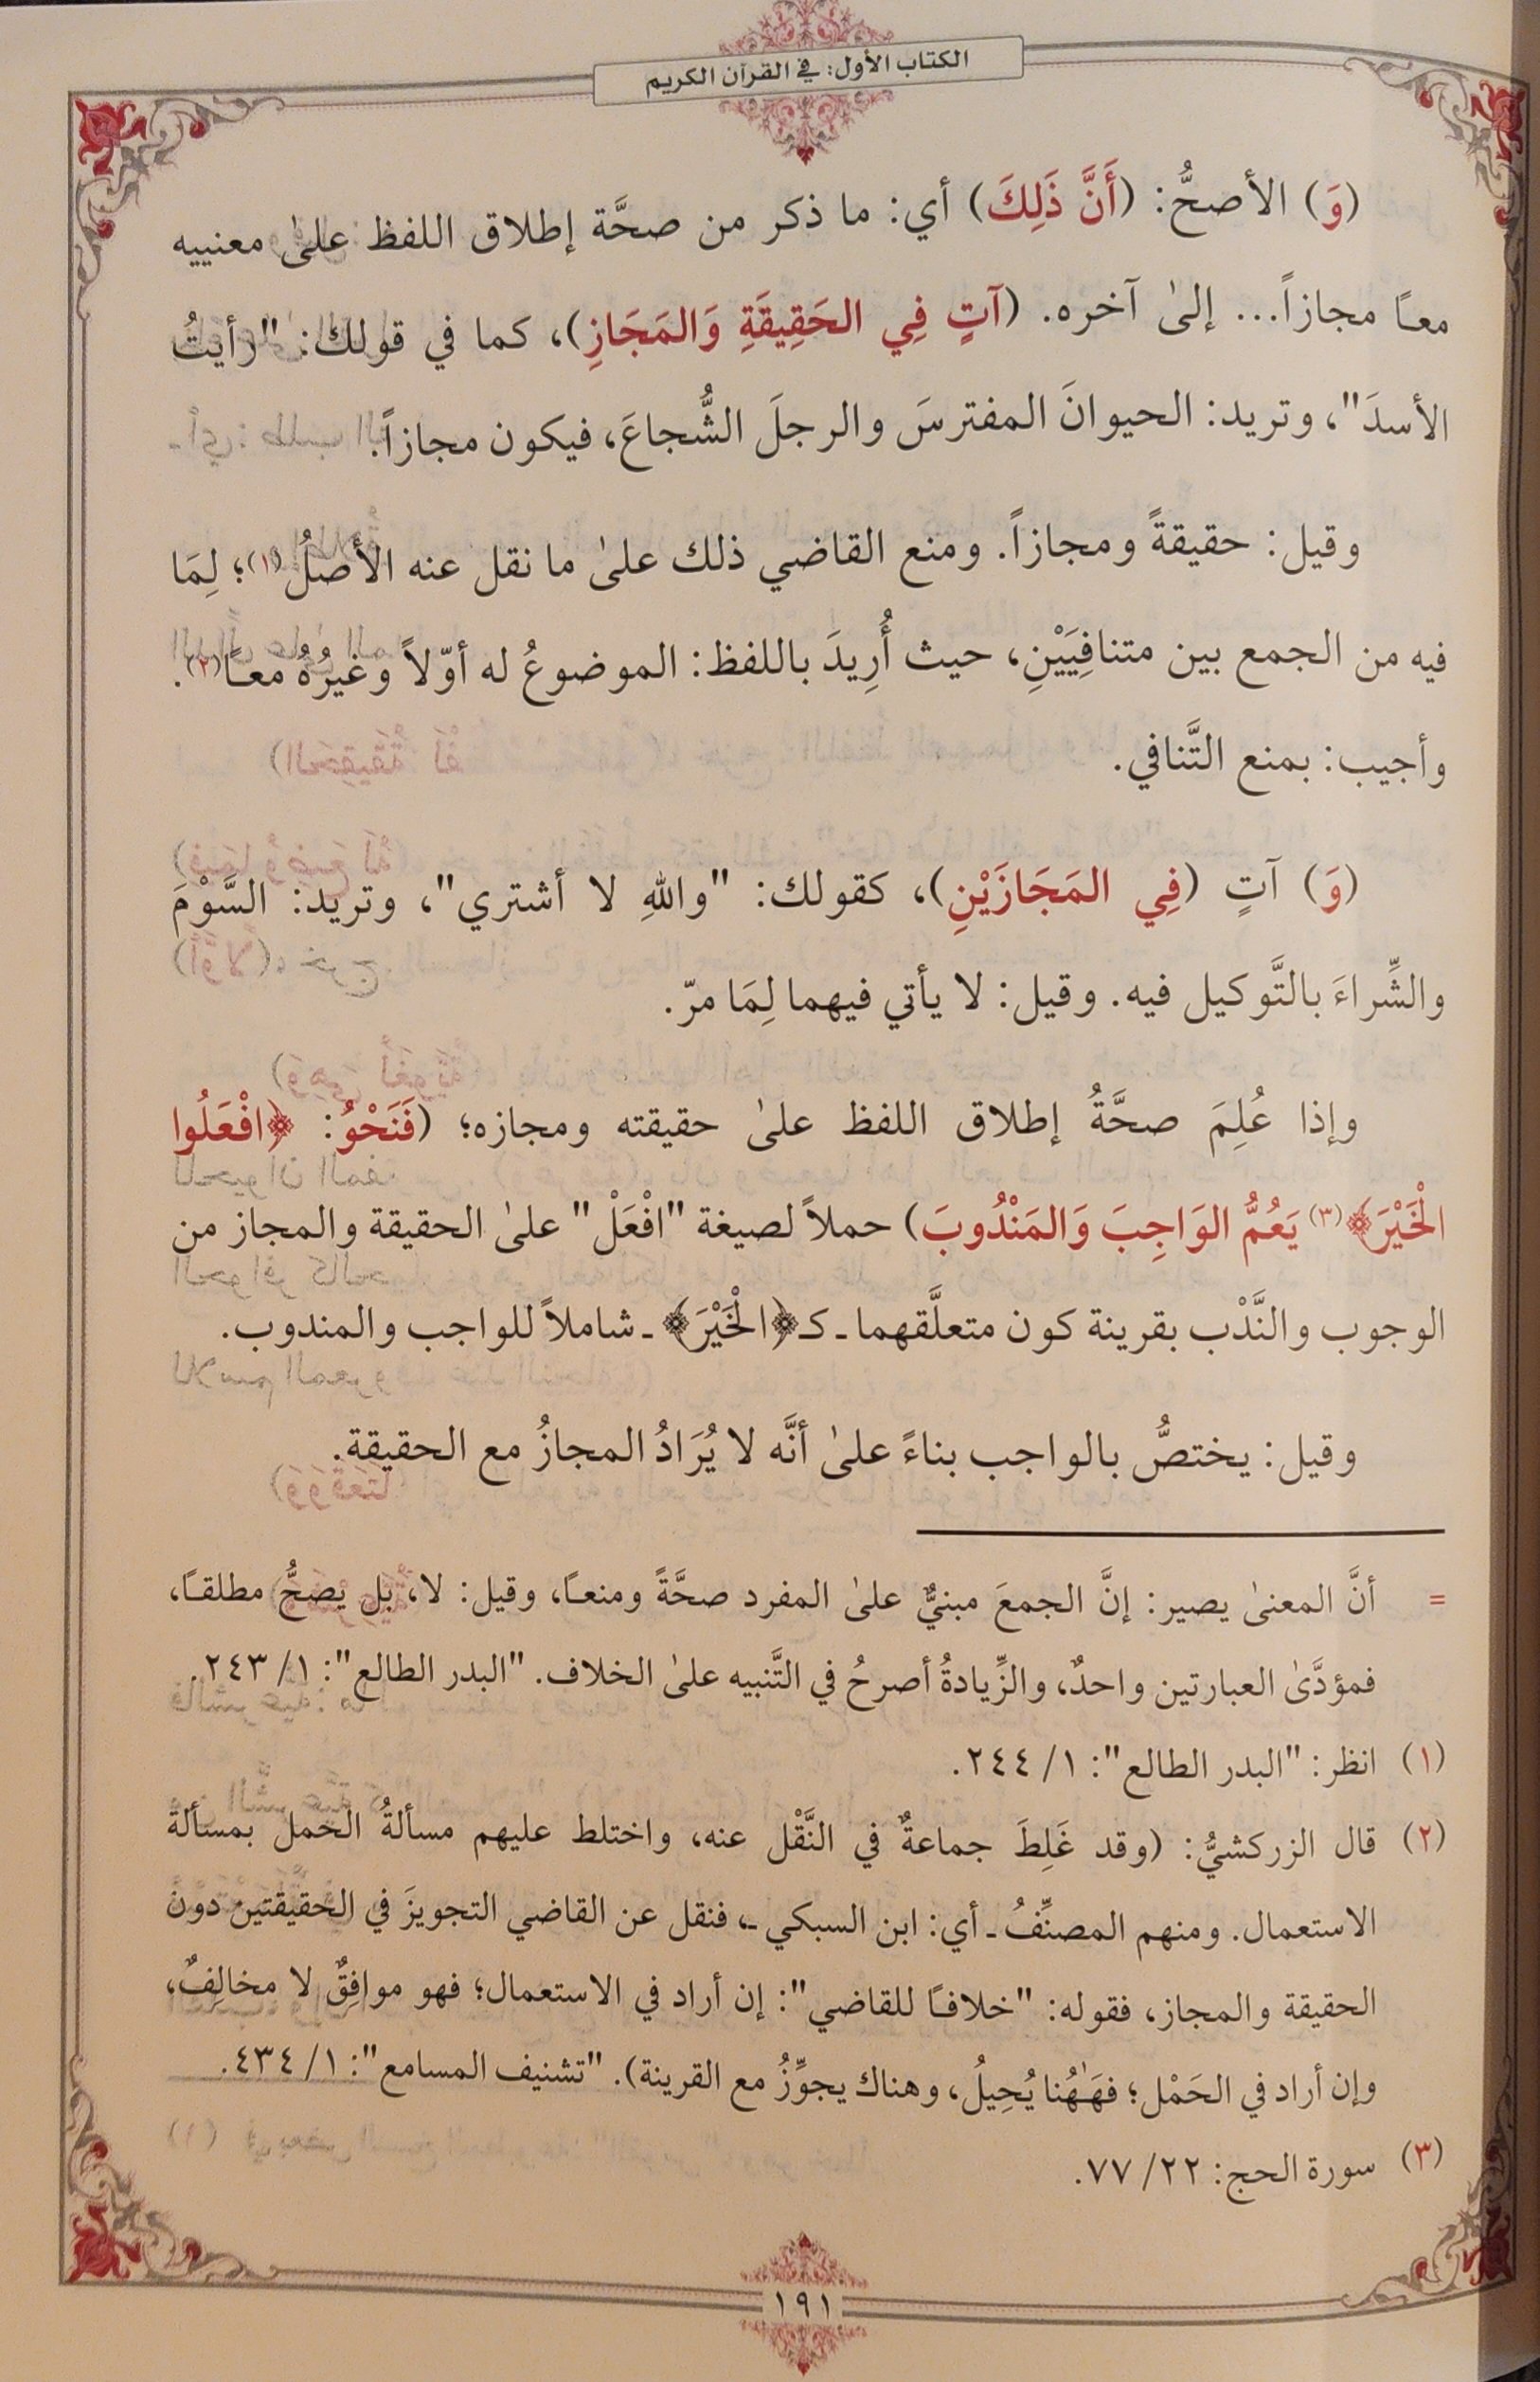 الكتاب الأول: في القرآن الكريم
(وَ) الأصحُّ: (أَنَّ ذَلِكَ) أي: ما ذكر من صحَّة إطلاق اللفظ علىٰ معنييه
معـًا مجازاً... إلىٰ آخره. (آتٍ فِي الحَقِيقَةِ وَالمَجَازِ)، كما في قولك: "رأيتُ
الأسدَ"، وتريد: الحيوانَ المفترسَ والرجلَ الشُّجاعَ، فيكون مجازاً.
وقيل: حقيقةً ومجازاً. ومنع القاضي ذلك علىٰ ما نقل عنه الأصلُ(١)؛ لِمَا
فيه من الجمع بين متنافِيَيْنِ، حيث أُرِيدَ باللفظ: الموضوعُ له أوّلاً وغيرُهُ معـًا(٢).
وأجيب: بمنع التَّنافي.
(وَ) آتٍ (فِي المَجَازَيْنِ)، كقولك: "واللهِ لا أشتري"، وتريد: السَّوْمَ
والشِّراءَ بالتَّوكيل فيه. وقيل: لا يأتي فيهما لِمَا مرّ.
وإذا عُلِمَ صحَّةُ إطلاق اللفظ علىٰ حقيقته ومجازه؛ (فَنَحْوُ: ﴿افْعَلُوا
الْخَيْرَ﴾(٣) يَعُمُّ الوَاجِبَ وَالمَنْدُوبَ) حملاً لصيغة "افْعَلْ" علىٰ الحقيقة والمجاز من
الوجوب والنَّدْب بقرينة كون متعلَّقهما ـ كـ﴿الْخَيْرَ﴾ ـ شاملاً للواجب والمندوب.
وقيل: يختصُّ بالواجب بناءً علىٰ أنَّه لا يُرَادُ المجازُ مع الحقيقة.
= أنَّ المعنىٰ يصير: إنَّ الجمعَ مبنيٌّ علىٰ المفرد صحَّةً ومنعـًا، وقيل: لا، بل يصحُّ مطلقـًا،
فمؤدَّىٰ العبارتين واحدٌ، والزِّيادةُ أصرحُ في التَّنبيه علىٰ الخلاف. "البدر الطالع": ١/ ٢٤٣.
(١) انظر: "البدر الطالع": ١/ ٢٤٤.
(٢) قال الزركشيُّ: (وقد غَلِطَ جماعةٌ في النَّقْل عنه، واختلط عليهم مسألةُ الحمل بمسألة
الاستعمال. ومنهم المصنِّفُ ـ أي: ابن السبكي ـ، فنقل عن القاضي التجويزَ في الحقيقتين دون
الحقيقة والمجاز، فقوله: "خلافـًا للقاضي": إن أراد في الاستعمال؛ فهو موافِقٌ لا مخالِفٌ،
وإن أراد في الحَمْل؛ فهَـٰهُنا يُحِيلُ، وهناك يجوِّزُ مع القرينة). "تشنيف المسامع": ١/ ٤٣٤.
(٣) سورة الحج: ٢٢/ ٧٧.
١٩١